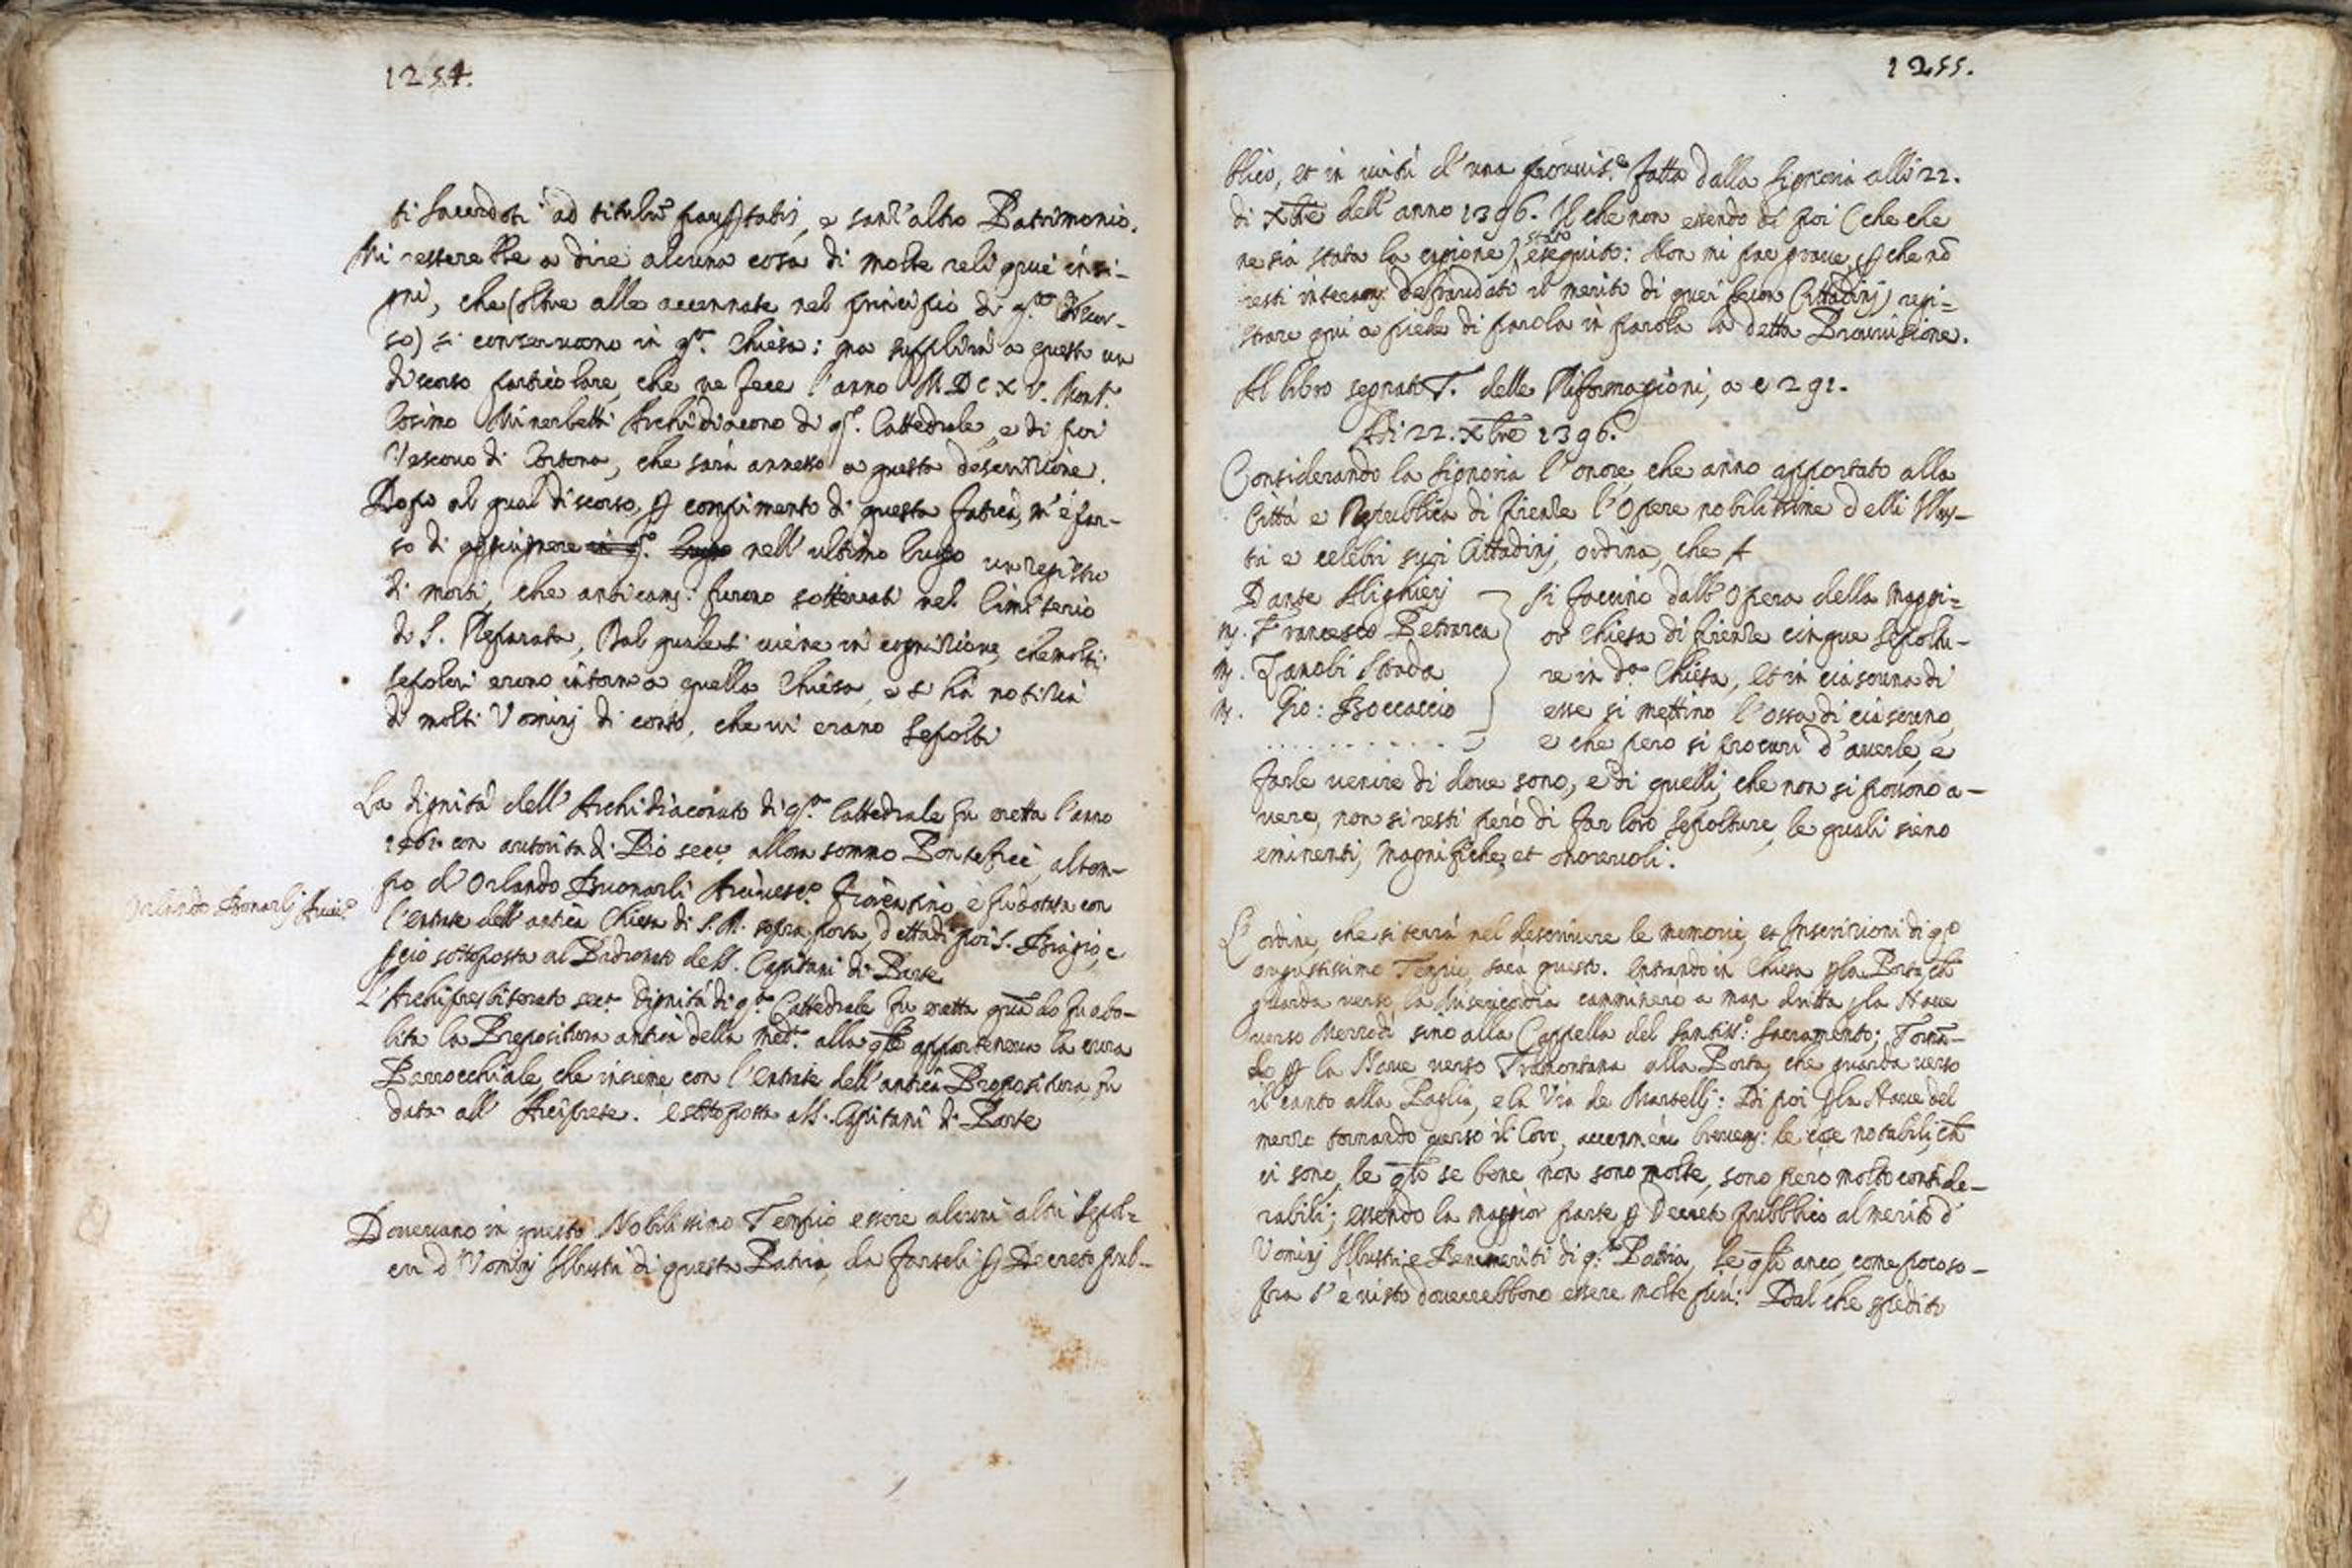 1254.
ti Sacerdoti ad titulũ paupertatis, e sanz'altro Patrimonio.
Mi resterebbe a dire alcuna cosa di molte relique insi-
gni, che (oltre alle accennate nel principio di q.to Discor-
so) si conservono in q.ta Chiesa: ma supplirà a questo un
discorso particolare, che ne fece l'anno M.DCXV. Mons.r
Cosimo Minerbetti Archidiacono di q.ta Cattedrale, e di poi
Vescovo di Cortona, che sarà annesso a questa descrizione.
Dopo al qual discorso, ꝑ compimento di questa fatica, m'è par-
so di aggiugnere in q.o luogo nell'ultimo luogo un registro
di morti, che anticam.te furono sotterrati nel Cimiterio
di S. Reparata, Dal quale si viene in cognizione, che molti
sepolcri erono intorno a quella Chiesa, e s'ha notizia
di molti Vominj di conto, che vi erano Sepolti
La dignità dell'Archidiaconato di q.ta Cattedrale fu eretta l'anno
1461. con autorità di Pio sec.o allora sommo Pontefice, al tem-
po d'Orlando Buonarli Arcivesc.o Fiorentino, e fu dotata con
Orlando Bonarlj Arciv.o
l'entrate dell'antica Chiesa di S. M. sopra porta, detta di poi S. Biagio, e
perciò sottoposta al Padronato dell. Capitani di Parte
L'Archipresbiterato sec.a dignità di q.ta Cattedrale fu eretta quãdo fu abo-
lita la Prepositura antica della med.a alla q̃le apparteneva la cura
Parrocchiale, che insieme con l'entrate dell'antica Propositura, fu
data all' Arciprete. e sottoposta all. Capitani di Parte
Dovevano in questo Nobilissimo Tempio essere alcuni altri Sepol=
cri d'Vominj Illustri di questa Patria, da farseli ꝑ Decreto pub-
1255.
blico, et in virtù d'una provvis.e fatta dalla Signoria alli 22.
di Xbre dell'anno 1396. Il che non essendo di poi (che che
ne sia stata la cagione) stato eseguito: Non mi fie grave, ꝑ che nõ
resti interam.te defraudato il merito di quei buon Cittadinj, regi=
strare qui a piede di parola in parola la detta Provvisione.
Al libro segnato T. delle Riformagioni, a c 291.
Adi 22. Xbre 1396.
Considerando la Signoria l'onore, che anno apportato alla
Città e Republica di firenze l'Opere nobilissime delli Illus-
tri e celebri suoi Cittadinj, ordina, che ꝑ
Dante Alighierj
M. Francesco Petrarca
M. Zanobi Strada
M. Gio: Boccaccio
. . . . . . . . . . . .
Si faccino dall'Opera della Maggi=
or Chiesa di firenze cinque Sepoltu-
re in d.a Chiesa, et in ciascuna di
esse si mettino l'ossa di ciascuno,
e che però si procuri d'averle, e
farle venire di dove sono, e di quelli, che non si possono a-
vere, non si resti però di far loro Sepolture, le quali sieno
eminenti, magnifiche, et onorevoli.
L'ordine, che si terrà nel descrivere le memorie, et Inscrizioni di q.o
augustissimo Tempio, sarà questo. Entrando in Chiesa ꝑ la Porta, ch̃
guarda verso la Misericordia camminerò a man dritta ꝑ la Nave
verso Mezzodì sino alla Cappella del Santiss.o Sacramento; Tornã-
do ꝑ la Nave verso Tramontana alla Porta, che guarda verso
il canto alla Paglia, e la Via de Martellj: Di poi ꝑ la Nave del
mezzo tornando verso il Coro, accennerò brevem.te le cose notabili, ch̃
vi sono, le q̃li se bene non sono molte, sono però molto conside-
rabili; essendo la maggior parte ꝑ Decreto pubblico al merito d'
Vominj Illustri, e Benemeriti di q.ta Patria, le q̃li anco, come poco so-
pra s'è visto doverrebbono essere molte più: Dal che spedito